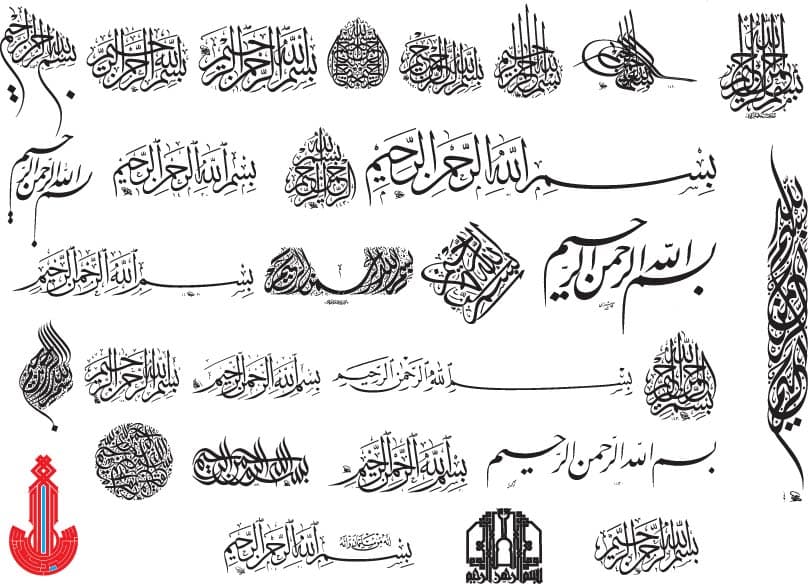 بسم الله الرحمن الرحيم
بسم الله الرحمن الرحيم
بسم الله الرحمن الرحيم
بسم الله الرحمن الرحيم
بسم الله الرحمن الرحيم
بسم الله الرحمن الرحيم
بسم الله الرحمن الرحيم
بسم الله الرحمن الرحيم
بسم الله الرحمن الرحيم
بسم الله الرحمن الرحيم
بسم الله الرحمن الرحيم
بسم الله الرحمن الرحيم
بسم الله الرحمن الرحيم
بسم الله الرحمن الرحيم
بسم الله الرحمن الرحيم
بسم الله الرحمن الرحيم
بسم الله الرحمن الرحيم
بسم الله الرحمن الرحيم
بسم الله الرحمن الرحيم
بسم الله الرحمن الرحيم
بسم الله الرحمن الرحيم
بسم الله الرحمن الرحيم
بسم الله الرحمن الرحيم
بسم الله الرحمن الرحيم
بسم الله الرحمن الرحيم
بسم الله الرحمن الرحيم
إنه من سليمان وإنه
بسم الله الرحمن الرحيم
بسم الله الرحمن الرحيم
بسم الله الرحمن الرحيم